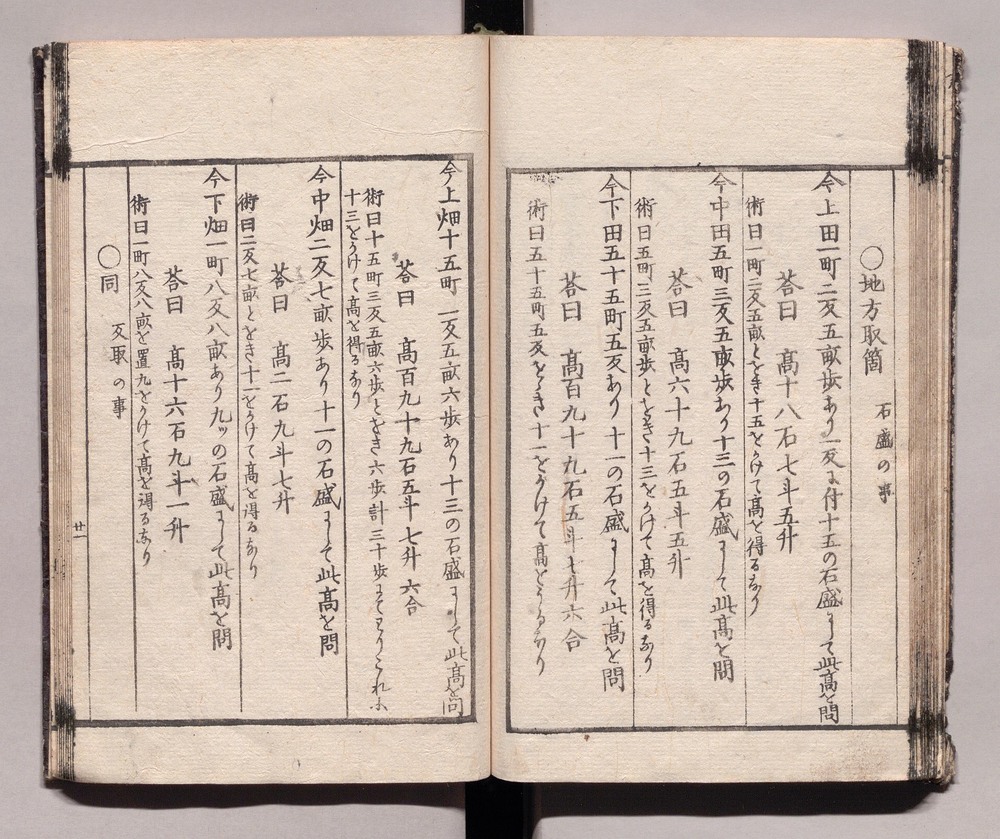 ○地方取箇 石盛の事
今上田一町二反五畝歩あり一反に付十五の石盛にして此高を問
答曰 高十八石七斗五升
術曰一町二反五畝とをき十五をかけて高を得るなり
今中田五町三反五畝歩あり十三の石盛にして此高を問
答曰 高六十九石五斗五升
術曰五町三反五畝歩とをき十三をかけて高を得るなり
今下田五十五町五反あり十一の石盛にして此高を問
答曰 高百九十九石五斗七升六合
術曰五十五町五反をき十一をかけて高をうるなり
今上畑十五町一反五畝六歩あり十三の石盛にして此高を問
答曰 高百九十九石五斗七升六合
術曰十五町三反五畝六歩とをき六歩計三十歩にてわりこれに
十三をかけて高を得るなり
今中畑二反七畝歩あり十一の石盛にして此高を問
答曰 高二石九斗七升
術曰二反七畝とをき十一をかけて高を得るなり
今下畑一町八反八畝あり九ッの石盛にして此高を問
答曰 高十六石九斗一升
術曰一町八反八畝を置九をかけて高を得るなり
○同 反取の事
廿一